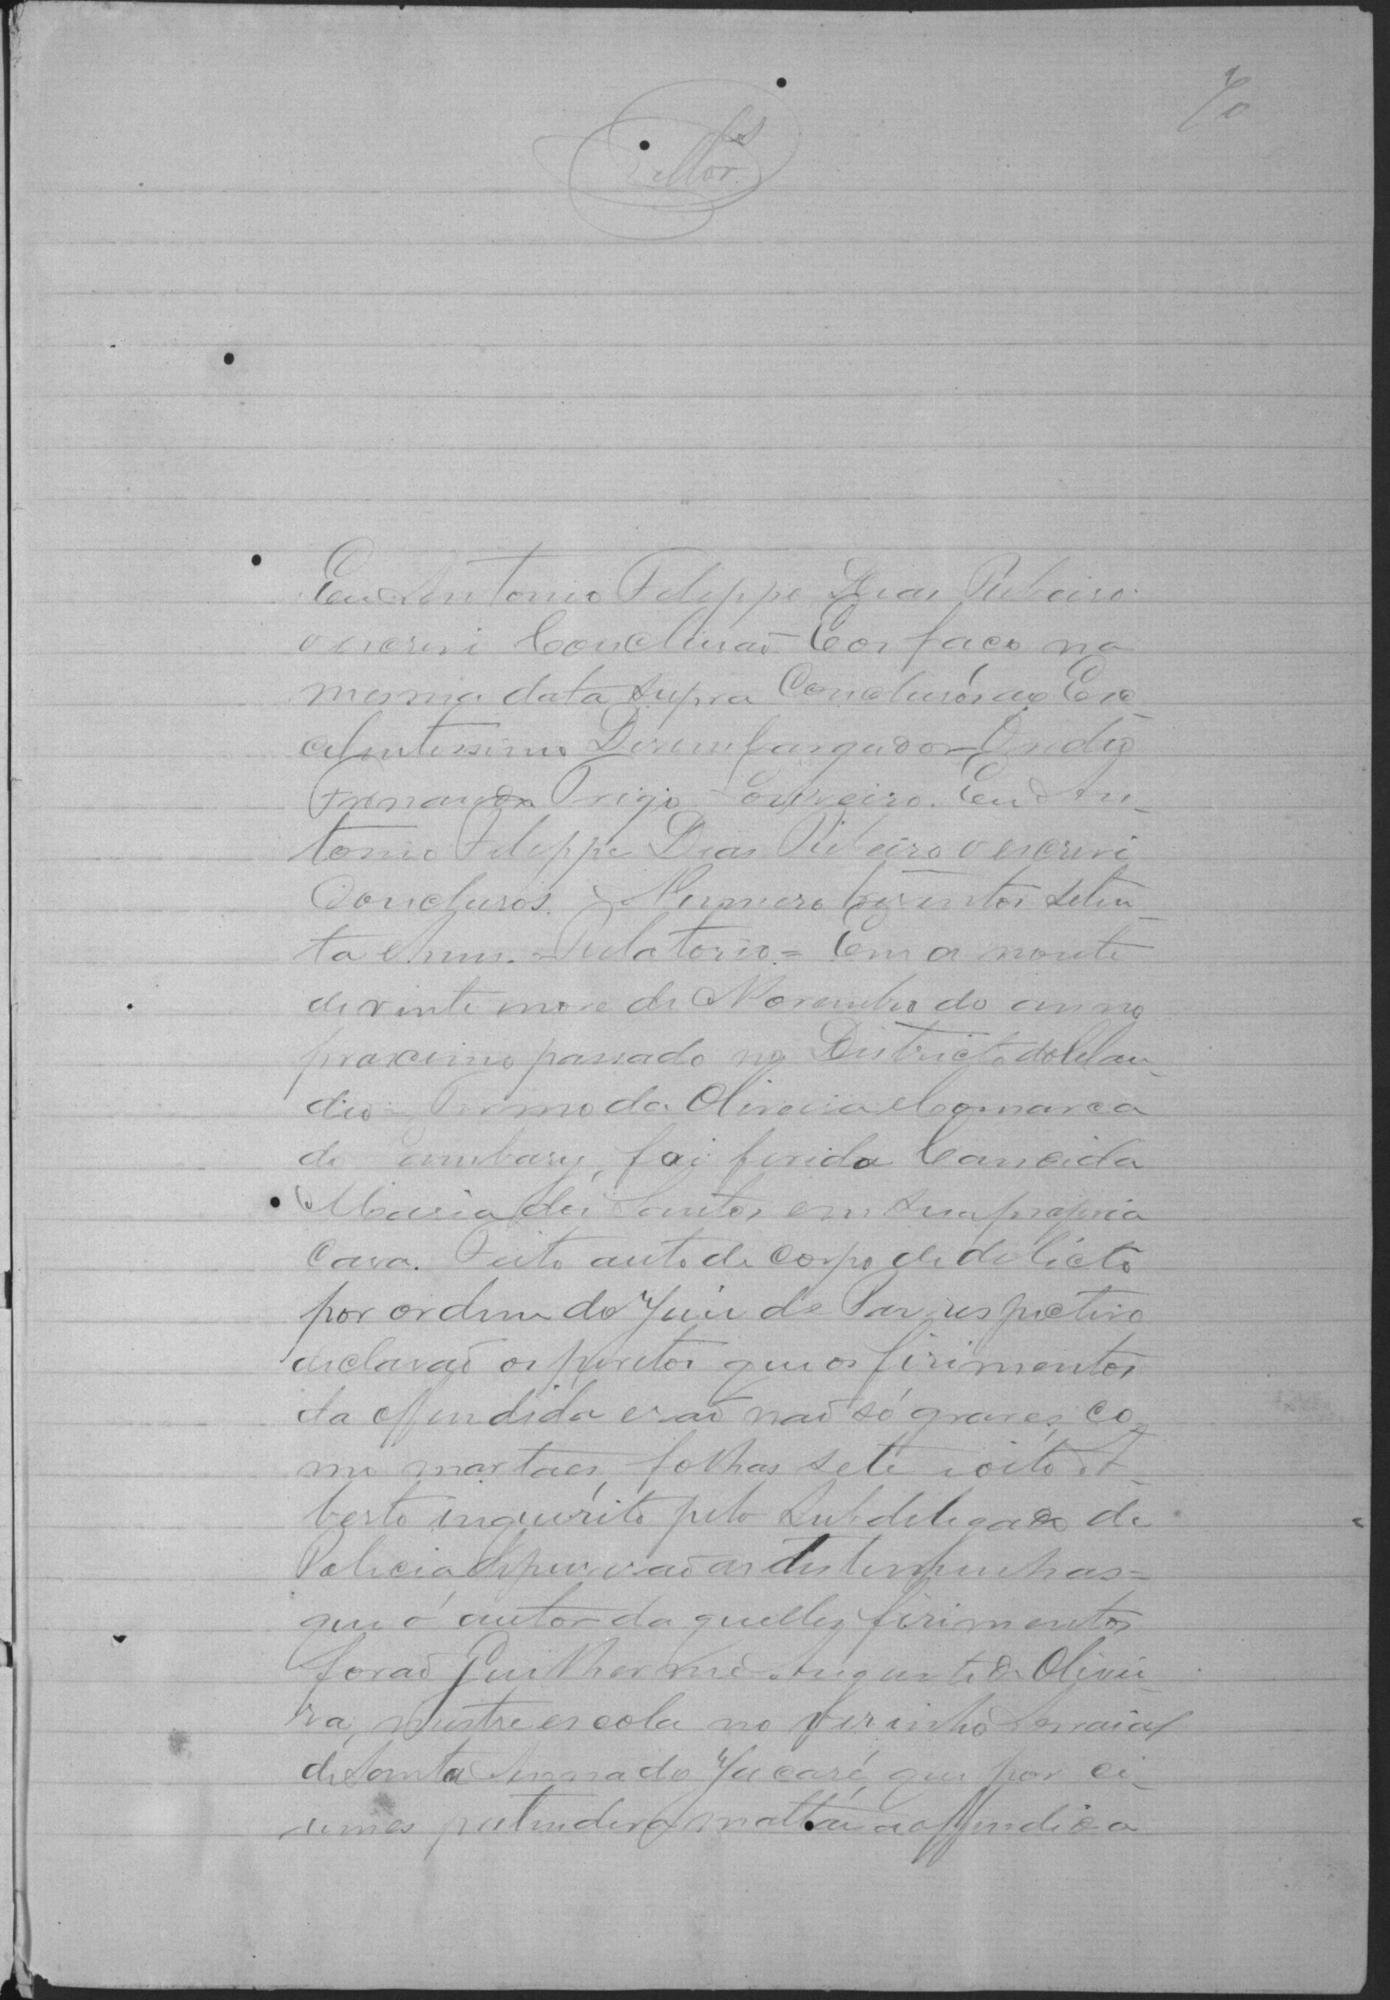 70
Eu Antonio Felippe Dias Ribeiro
o escrevi Conclusão E os faço na
mesma data supra Conclusos ao Exc
celentissimo Desembargador
Fernandes Trigo Loureiro. Eu An-
tonio Felippe Dias Ribeiro o escrevi
Conclusos. Numero trezentos seten-
ta e hum. = Relatorio = Em a noute
de vinte nove de Novembro do anno
proximo passado no Districto do Clau-
dio Termo da Oliveira e Comarca
do Jambary, foi ferida Candida
Maria dos Santos em sua propria
Casa. Feito auto de corpo de delicto
por ordem do Juiz de Paz respectivo
declarão os peritos que os firimentos
da offendida erão não só graves, co-
mo mortaes, folhas sete e oito A-
berto inquerito pelo Subdelegado de
Policia depuzerão as testemunhas =
que o autor daquelles firimentos
forão Guilherme Augusto de Olivei-
ra, mestre escola no visinho Arraial
de Santa Anna do Jacaré, que por ci-
umes pretendera mattar a offendida